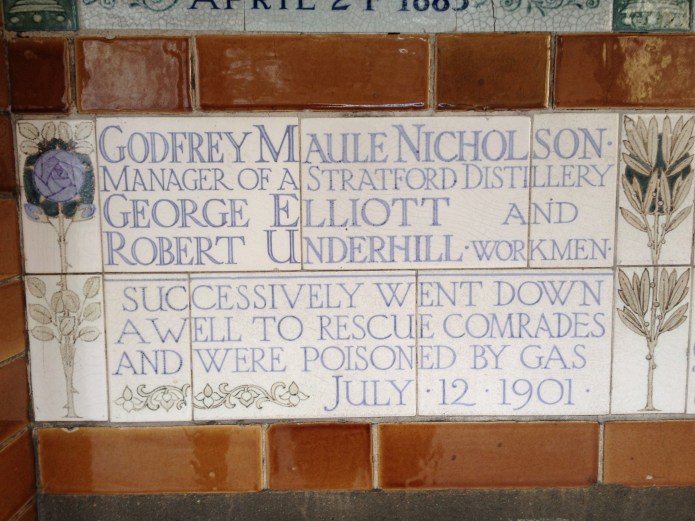 APRIL 24 1885
GODFREY MAULE NICHOLSON·
MANAGER OF A STRATFORD DISTILLERY
GEORGE ELLIOTT AND
ROBERT UNDERHILL·WORKMEN·
SUCCESSIVELY WENT DOWN
A WELL TO RESCUE COMRADES
AND WERE POISONED BY GAS
JULY ·12 ·1901·